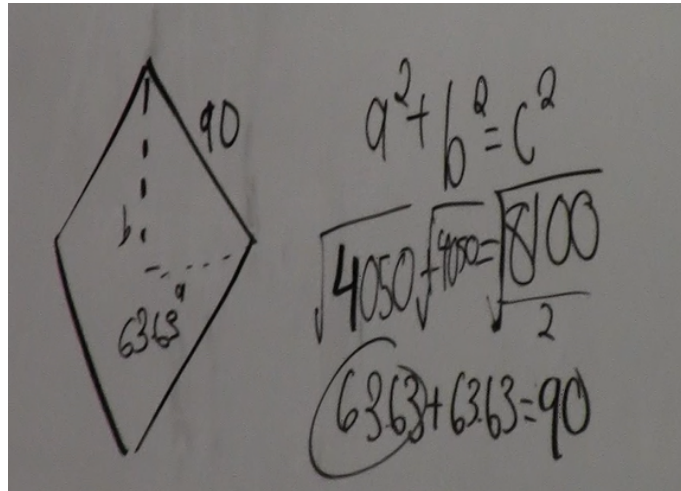 90
b
a
63.63
a² + b² = c²
√4050 + √4050 = √8100
2
63.63 + 63.63 = 90